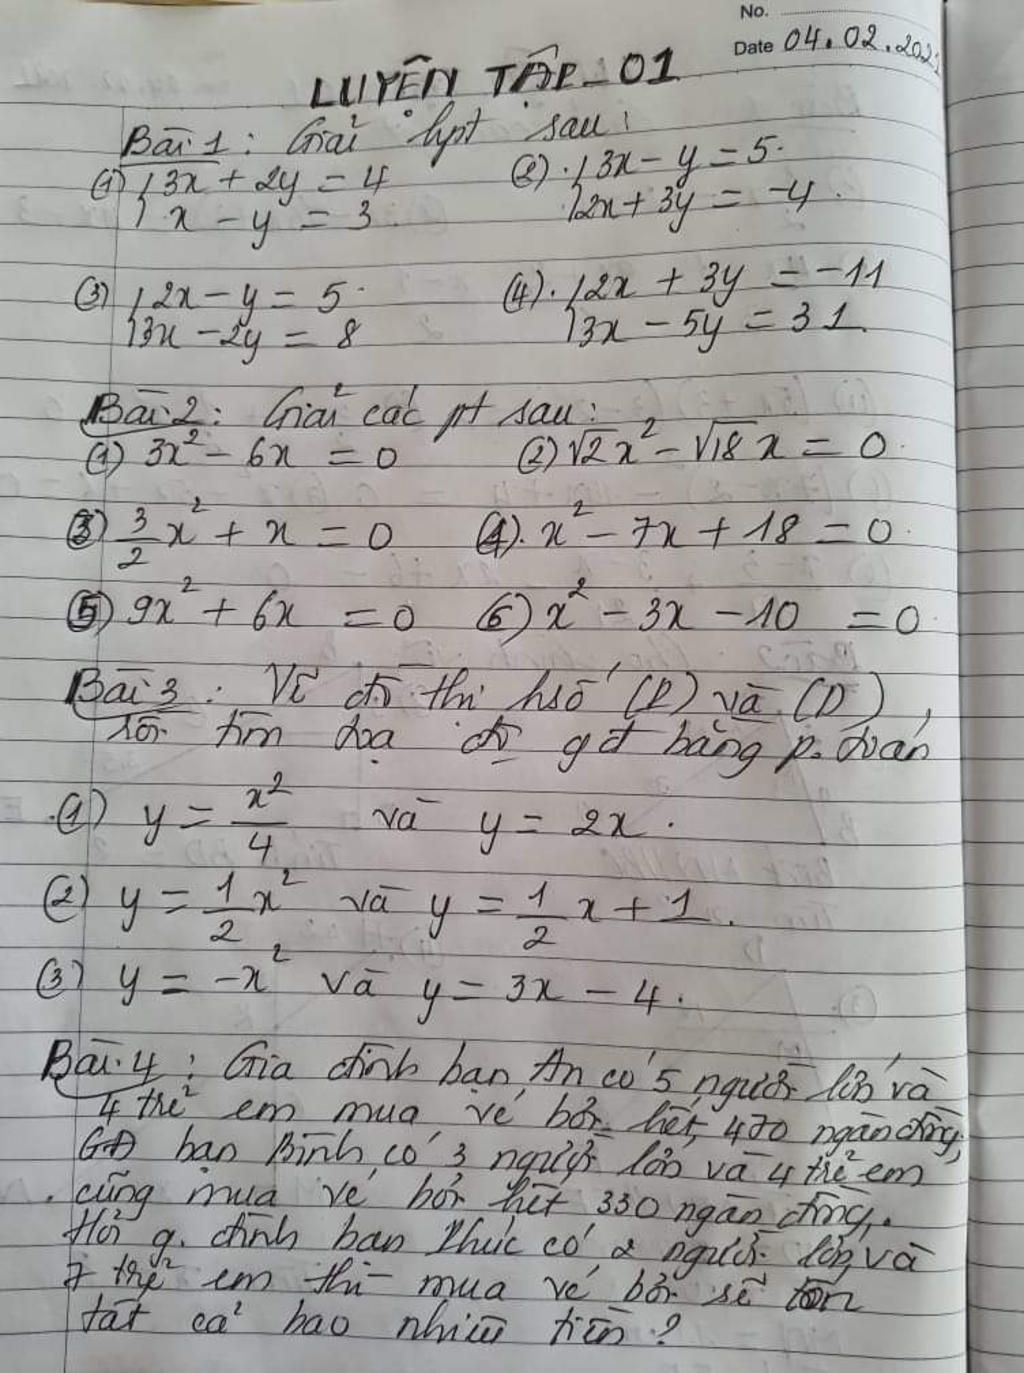 No.
Date 04.02.202
LUYỆN TẬP_01
Bài 1: Giải hpt sau:
(1) { 3x + 2y = 4 (2). { 3x - y = 5.
{ x - y = 3. { 2x + 3y = -4.
(3) { 2x - y = 5. (4). { 2x + 3y = -11
{ 3x - 2y = 8 { 3x - 5y = 31.
Bài 2: Giải các pt sau:
(1) 3x² - 6x = 0 (2) √2x² - √18x = 0.
(3) 3/2 x² + x = 0 (4). x² - 7x + 18 = 0.
(5) 9x² + 6x = 0 (6) x² - 3x - 10 = 0.
Bài 3: Vẽ đồ thị hsố (P) và (D),
rồi tìm tọa độ gđ bằng p. toán
(1) y = x²/4 và y = 2x.
(2) y = 1/2 x² và y = 1/2 x + 1.
(3) y = -x² và y = 3x - 4.
Bài 4: Gia đình bạn An có 5 người lớn và
4 trẻ em mua vé bơi hết 470 ngàn đồng,
GĐ bạn Bình có 3 người lớn và 4 trẻ em
cũng mua vé bơi hết 330 ngàn đồng.
Hỏi g. đình bạn Phúc có 2 người lớn và
7 trẻ em thì mua vé bơi sẽ tốn
tất cả bao nhiêu tiền?